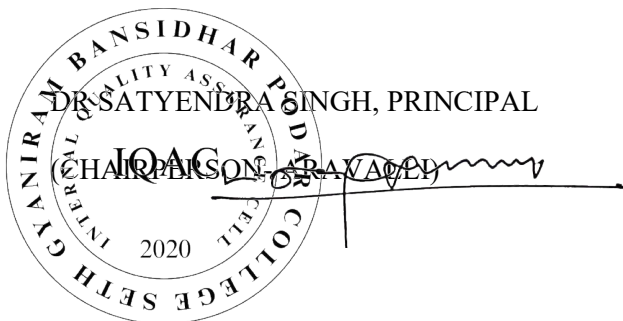 DR SATYENDRA SINGH, PRINCIPAL
(CHAIRPERSON- ARAVALLI)
SETH GYANIRAM BANSIDHAR PODAR COLLEGE
INTERNAL QUALITY ASSURANCE CELL
IQAC
2020